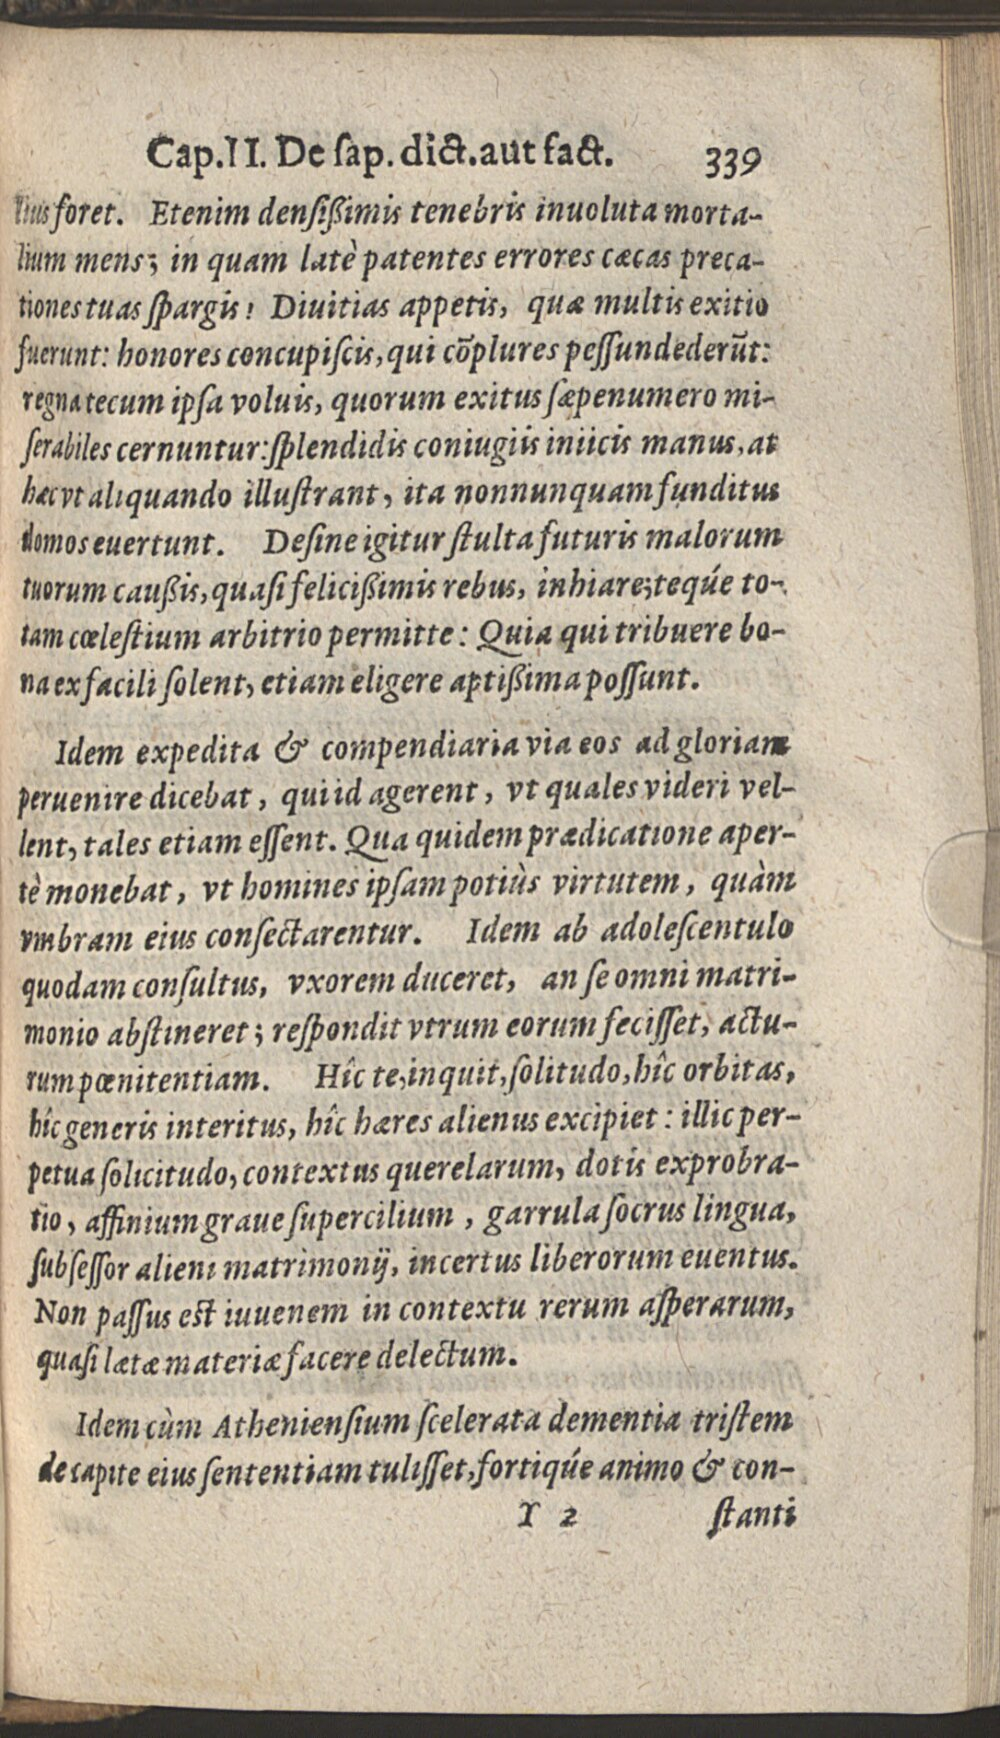 Cap. II. De ſap. dict. aut fact. 339
lius foret. Etenim denſißimis tenebris inuoluta morta-
lium mens; in quam latè patentes errores cæcas preca-
tiones tuas ſpargis! Diuitias appetis, quæ multis exitio
fuerunt: honores concupiſcis, qui cōplures peſſundederūt:
regna tecum ipſa voluis, quorum exitus ſæpenumero mi-
ſerabiles cernuntur: ſplendidis coniugiis iniicis manus, at
hæc vt aliquando illuſtrant, ita nonnunquam funditus
domos euertunt. Deſine igitur ſtulta futuris malorum
tuorum caußis, quaſi felicißimis rebus, inhiare; teqúe to-
tam cœleſtium arbitrio permitte: Quia qui tribuere bo-
na ex facili ſolent, etiam eligere aptißima poſſunt.
Idem expedita & compendiaria via eos ad gloriam
peruenire dicebat, qui id agerent, vt quales videri vel-
lent, tales etiam eſſent. Qua quidem prædicatione aper-
tè monebat, vt homines ipſam potiùs virtutem, quàm
vmbram eius conſectarentur. Idem ab adoleſcentulo
quodam conſultus, vxorem duceret, an ſe omni matri-
monio abſtineret; reſpondit vtrum eorum feciſſet, actu-
rum pœnitentiam. Hîc te, inquit, ſolitudo, hîc orbitas,
hîc generis interitus, hîc hæres alienus excipiet: illic per-
petua ſolicitudo, contextus querelarum, dotis exprobra-
tio, affinium graue ſupercilium, garrula ſocrus lingua,
ſubſeſſor alieni matrimonij, incertus liberorum euentus.
Non paſſus est iuuenem in contextu rerum aſperarum,
quaſi lætæ materiæ facere delectum.
Idem cùm Athenienſium ſcelerata dementia triſtem
de capite eius ſententiam tuliſſet, fortiqúe animo & con-
Y 2 ſtanti